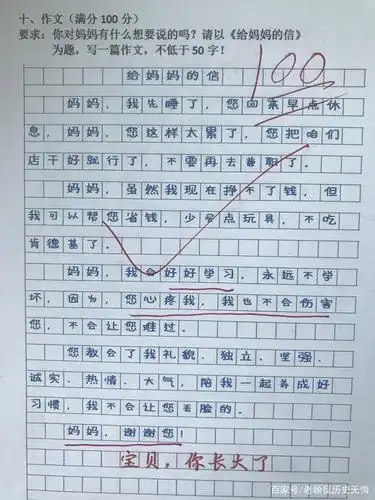 十、作文（满分 100 分）
要求：你对妈妈有什么想要说的吗？请以《给妈妈的信》
为题，写一篇作文，不低于 50 字！
100
给妈妈的信
妈妈，我先睡了，您回来早点休
息，妈妈，您这样太累了，您把咱们
店干好就行了，不要再去兼职了。
妈妈，虽然我现在挣不了钱，但
我可以帮您省钱，少买点玩具，不吃
肯德基了。
妈妈，我会好好学习，永远不学
坏，因为，您心疼我，我也不会伤害
您，不会让您难过。
您教会了我礼貌、独立、坚强、
诚实、热情、大气，陪我一起养成好
习惯，我不会让您丢脸的。
妈妈，谢谢您！
宝贝，你长大了